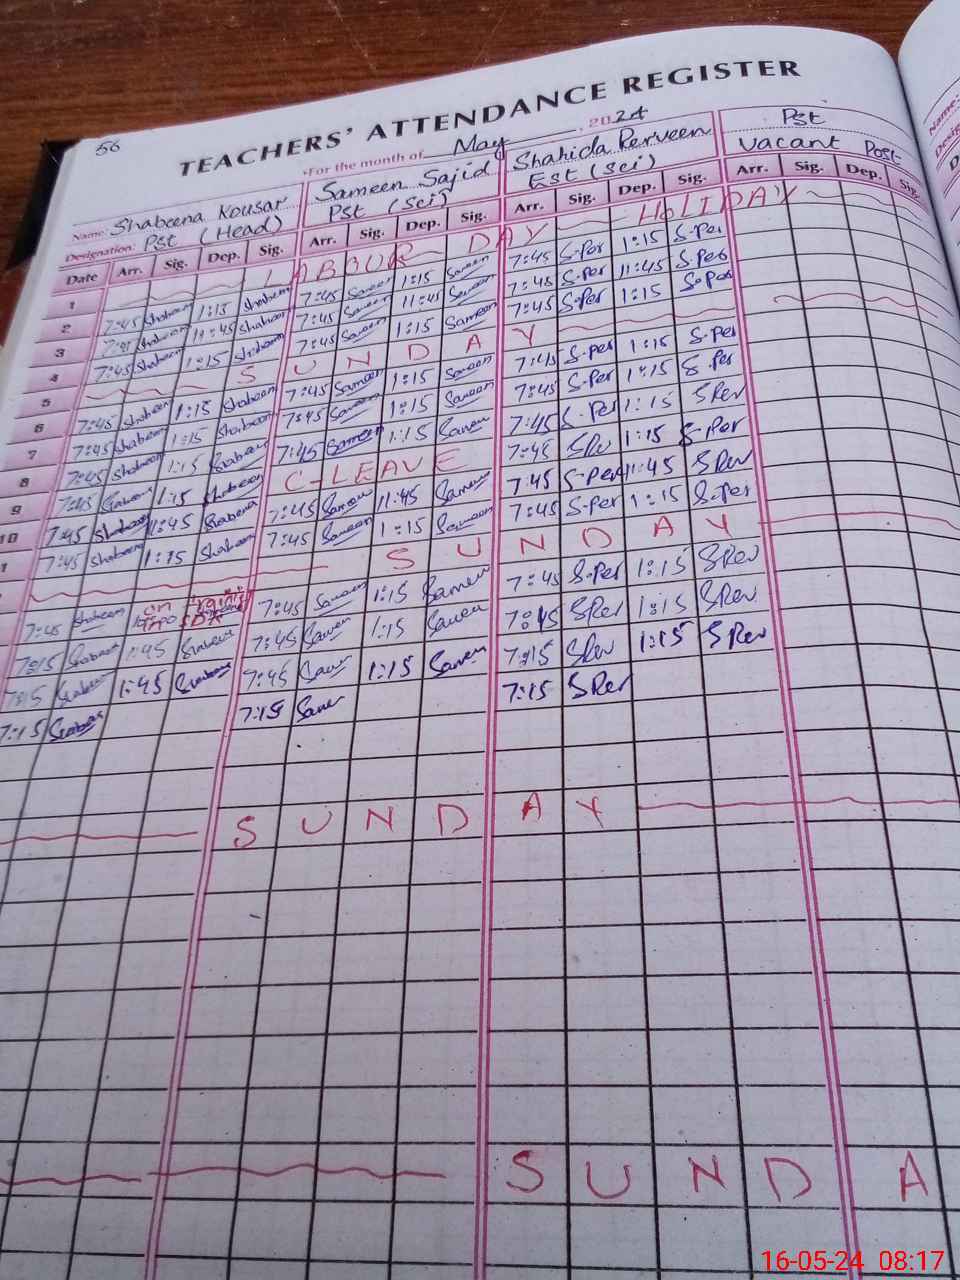 56
TEACHERS' ATTENDANCE REGISTER
For the month of May, 2024
Name: Shabeena Kousar Sameen Sajid Shahida Perveen Pst
Designation: Pst (Head) Pst (Sci) Est (Sci) Vacant Post
Date Arr. Sig. Dep. Sig. Arr. Sig. Dep. Sig. Arr. Sig. Dep. Sig. Arr. Sig. Dep. Sig.
1 LABOUR DAY HOLIDAY
2 7:45 Shabeen 1:15 Shabeen 7:45 Sameen 1:15 Sameen 7:45 S.Per 1:15 S.Per
3 7:45 Shabeen 11:45 Shabeen 7:45 Sameen 11:45 Sameen 7:45 S.Per 11:45 S.Per
4 7:45 Shabeen 1:15 Shabeen 7:45 Sameen 1:15 Sameen 7:45 S.Per 1:15 S.Per
5 SUNDAY
6 7:45 Shabeen 1:15 Shabeen 7:45 Sameen 1:15 Sameen 7:45 S.Per 1:15 S.Per
7 7:45 Shabeen 1:15 Shabeen 7:45 Sameen 1:15 Sameen 7:45 S.Per 1:15 S.Per
8 7:45 Shabeen 1:15 Shabeen 7:45 Sameen 1:15 Sameen 7:45 S.Per 1:15 SPer
9 7:45 1:15 Shabeen C-LEAVE 7:45 SPer 1:15 S.Per
10 7:45 Shabeen 11:45 Shabeena 7:45 Sameen 11:45 Sameen 7:45 S.Per 11:45 SPer
7:45 Shabeen 1:15 Shabeen 7:45 Sameen 1:15 Sameen 7:45 S.Per 1:15 S.Per
SUNDAY
7:45 Shabeen on 7:45 Sameen 1:15 Sameen 7:45 S.Per 1:15 SPer
7:15 Shabeen 1:45 Shabeen 7:45 Sameen 1:15 Sameen 7:45 SPer 1:15 SPer
7:15 Shabeen 1:45 Shabeen 7:45 Same 1:15 Sameen 7:15 SPer 1:15 SPer
7:15 Shabeen 7:15 Same 7:15 SPer
SUNDAY
SUNDA
16-05-24 08:17